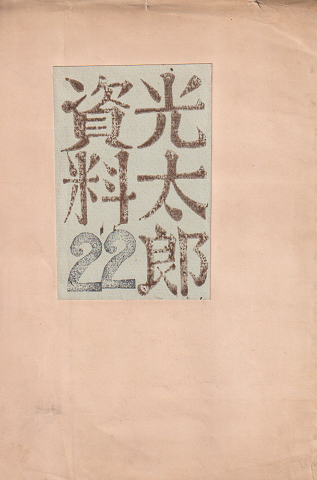 光太郎
資料
22